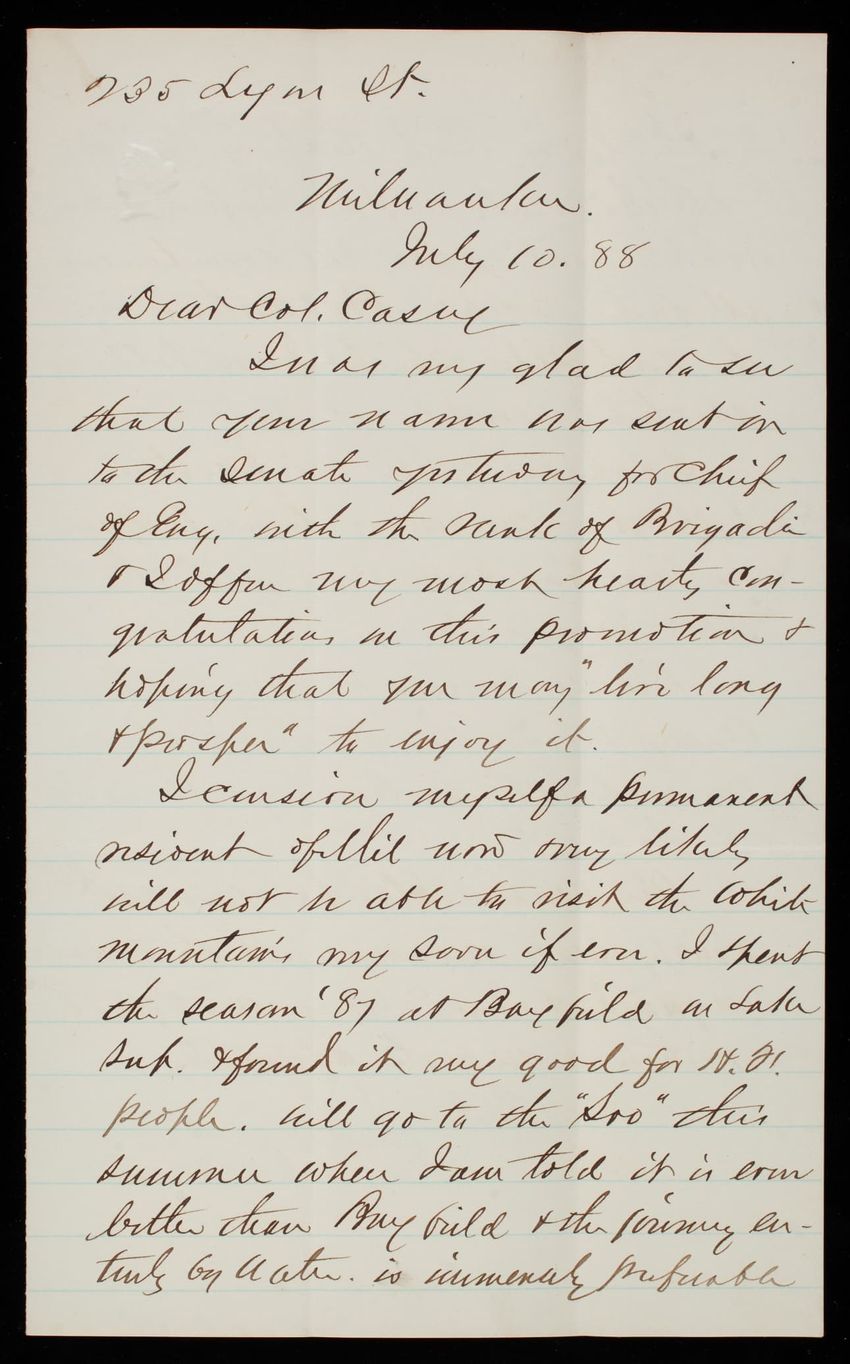 235 Lyon St.
Milwaukee.
July 10. 88
Dear Col. Casey
I was very glad to see
that your name was sent in
to the Senate yesterday for Chief
of Eng. with the rank of Brigadier
& I offer my most hearty con-
gratulations on this promotion &
hoping that you may "live long
& prosper" to enjoy it.
I consider myself a permanent
resident of Mil now & very likely
will not be able to visit the White
mountains very soon if ever. I spent
the season '87 at Bayfield on Lake
Sup. & found it very good for H. F.
people. Will go to the "Soo" this
summer where I am told it is even
better than Bayfield & the journey en-
tirely by water. is immensely preferable